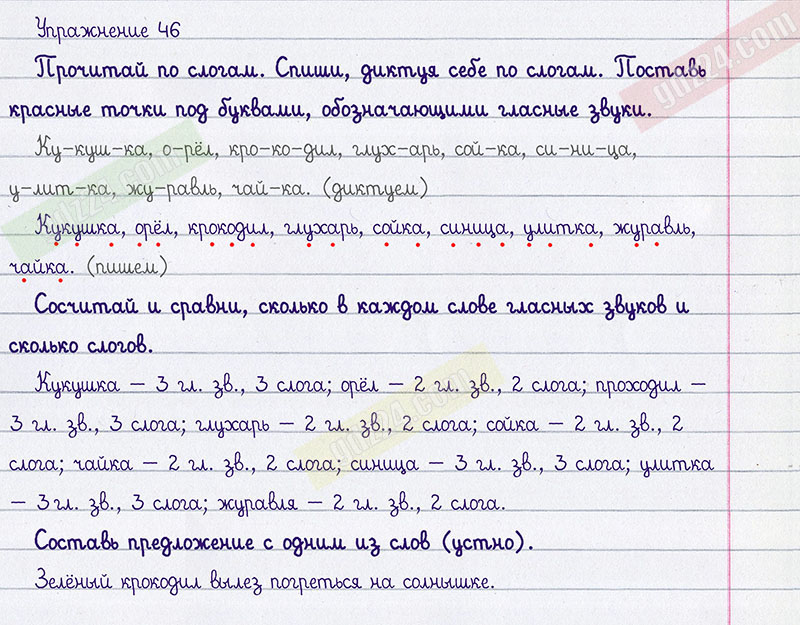 Упражнение 46
Прочитай по слогам. Спиши, диктуя себе по слогам. Поставь
красные точки под буквами, обозначающими гласные звуки.
Ку-куш-ка, о-рёл, кро-ко-дил, глух-арь, сой-ка, си-ни-ца,
у-лит-ка, жу-равль, чай-ка. (диктуем)
Кукушка, орёл, крокодил, глухарь, сойка, синица, улитка, журавль,
чайка. (пишем)
Сосчитай и сравни, сколько в каждом слове гласных звуков и
сколько слогов.
Кукушка – 3 гл. зв., 3 слога; орёл – 2 гл. зв., 2 слога; проходил –
3 гл. зв., 3 слога; глухарь – 2 гл. зв., 2 слога; сойка – 2 гл. зв., 2
слога; чайка – 2 гл. зв., 2 слога; синица – 3 гл. зв., 3 слога; улитка
– 3 гл. зв., 3 слога; журавля – 2 гл. зв., 2 слога.
Составь предложение с одним из слов (устно).
Зелёный крокодил вылез погреться на солнышке.
gdz24.com
gdz24.com
gdz24.com